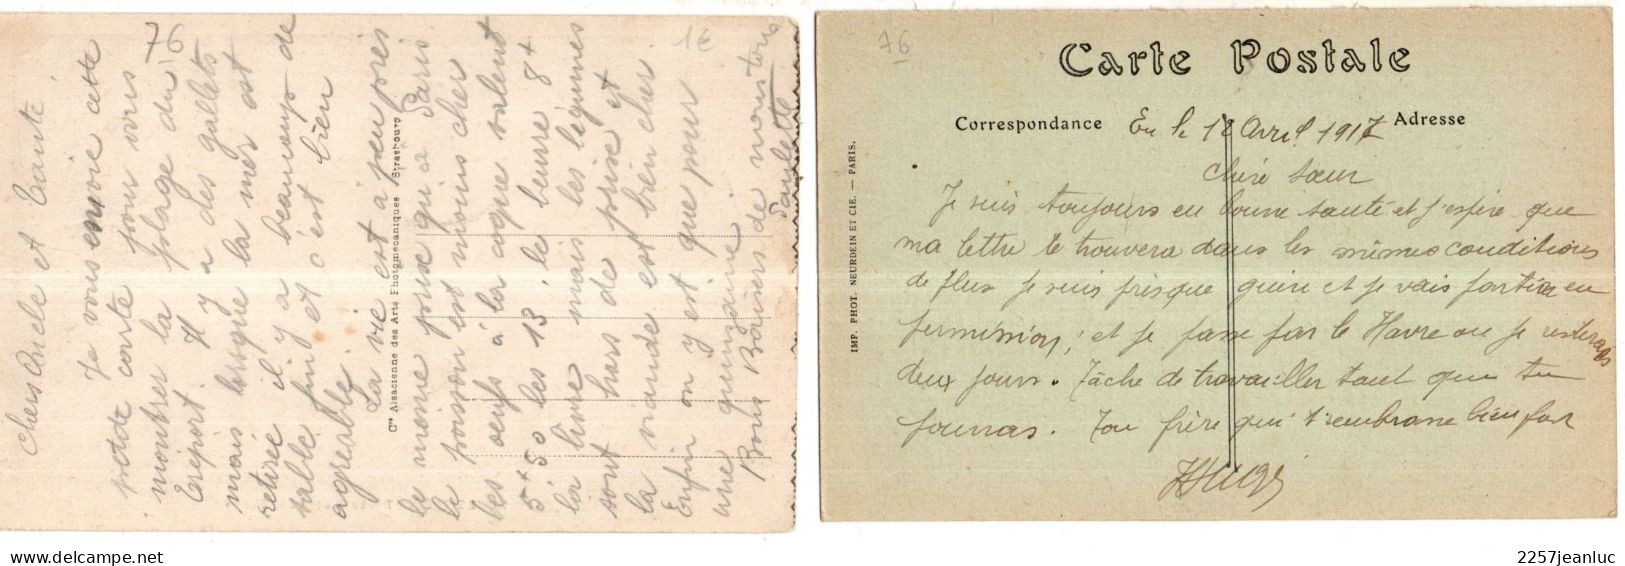 76
1€
Chers Oncle et Tante
Je vous envoie cette
petite carte pour vous
montrer la plage du
Tréport. Il y a des galets
mais lorsque la mer est
retirée il y a beaucoup de
sable fin et c'est bien
agréable.
La vie est à peu près
la même prix qu'à Paris
le poisson est moins cher
les oeufs à la coque valent
5+50 les 13, le beurre 8+
la livre mais les légumes
sont hors de prise et
la viande est bien cher
Enfin on y est que pour
une quinzaine
Bons Baisers de nous tous
Paulette
Cie Alsacienne des Arts Photomécaniques Strasbourg
76
Carte Postale
Correspondance
Adresse
En le 12 Avril 1917
Chère soeur
Je suis toujours en bonne santé et j'espère que
ma lettre te trouvera dans les mêmes conditions
de plus je suis presque guérie et je vais partir en
permission, et je passe par le Havre ou je resterais
deux jours. Tâche de travailler tant que tu
pourras. Ton frère qui t'embrasse bien fort
IMP. PHOT. NEURDEIN ET CIE. — PARIS.
2257jeanluc